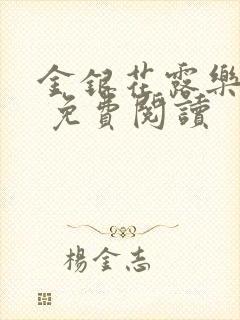 金銀花露樂
免費閱讀
楊金志